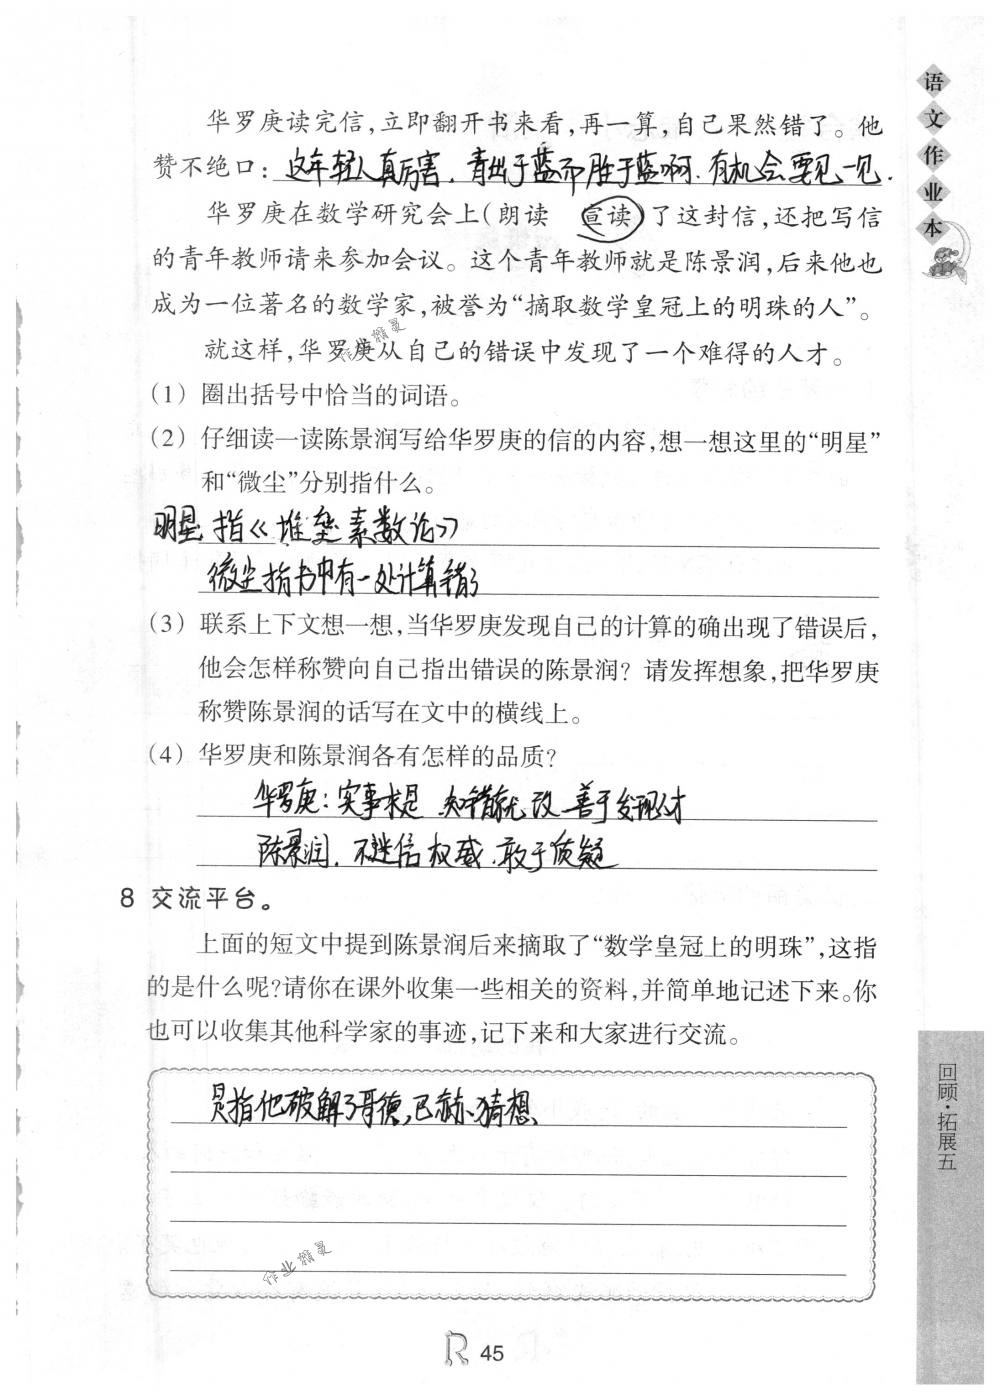 语文作业本
华罗庚读完信,立即翻开书来看,再一算,自己果然错了。他
赞不绝口:这年轻人真厉害,青出于蓝而胜于蓝啊,有机会要见一见.
华罗庚在数学研究会上(朗读 宣读)了这封信,还把写信
的青年教师请来参加会议。这个青年教师就是陈景润,后来他也
成为一位著名的数学家,被誉为“摘取数学皇冠上的明珠的人”。
作业精灵
就这样,华罗庚从自己的错误中发现了一个难得的人才。
(1) 圈出括号中恰当的词语。
(2) 仔细读一读陈景润写给华罗庚的信的内容,想一想这里的“明星”
和“微尘”分别指什么。
明星指《堆垒素数论》
微尘指书中有一处计算错了
(3) 联系上下文想一想,当华罗庚发现自己的计算的确出现了错误后,
他会怎样称赞向自己指出错误的陈景润?请发挥想象,把华罗庚
称赞陈景润的话写在文中的横线上。
(4) 华罗庚和陈景润各有怎样的品质?
华罗庚:实事求是 知错就改 善于发现人才
陈景润.不迷信权威.敢于质疑
8 交流平台。
上面的短文中提到陈景润后来摘取了“数学皇冠上的明珠”,这指
的是什么呢?请你在课外收集一些相关的资料,并简单地记述下来。你
也可以收集其他科学家的事迹,记下来和大家进行交流。
回顾·拓展五
是指他破解了哥德巴赫猜想
作业精灵
R 45